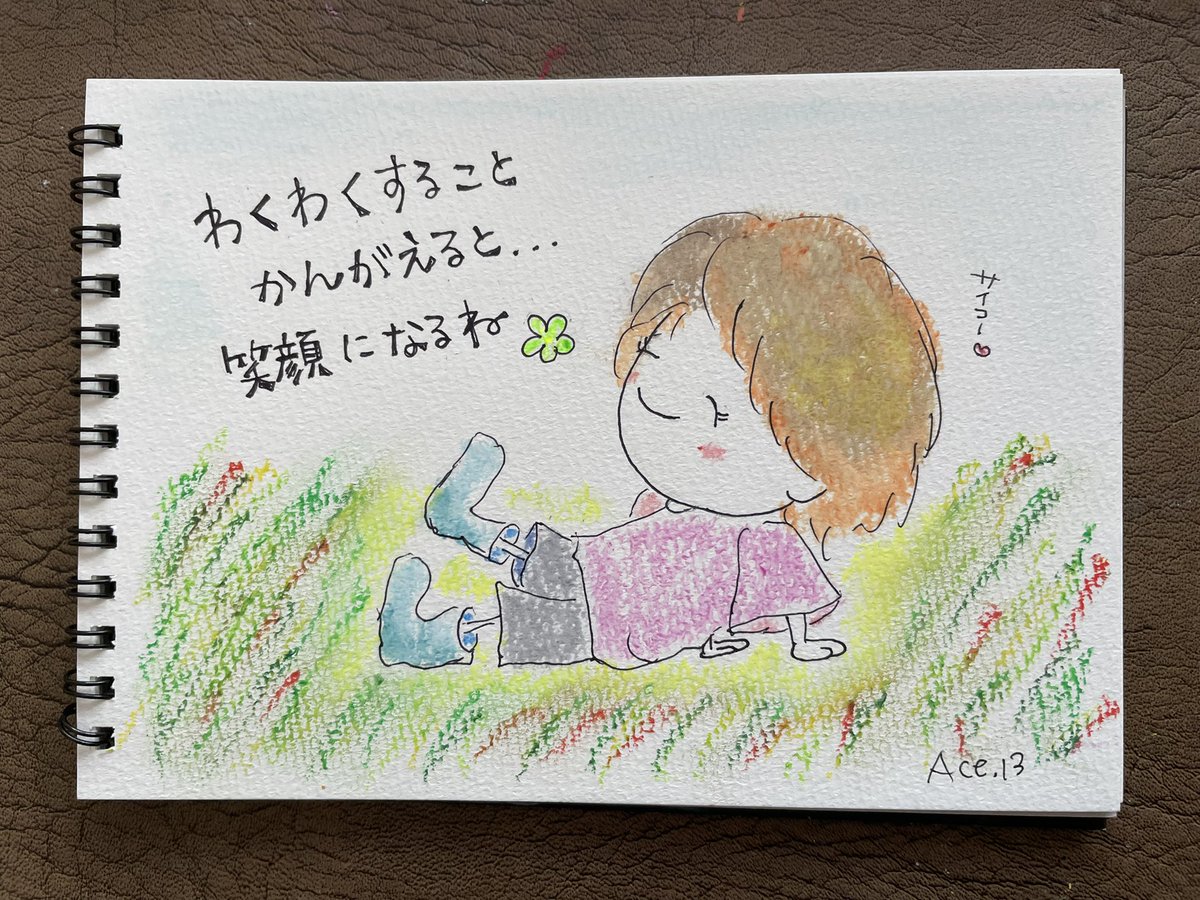 わくわくすること
かんがえると...
笑顔になるね
サイコー
Ace.13